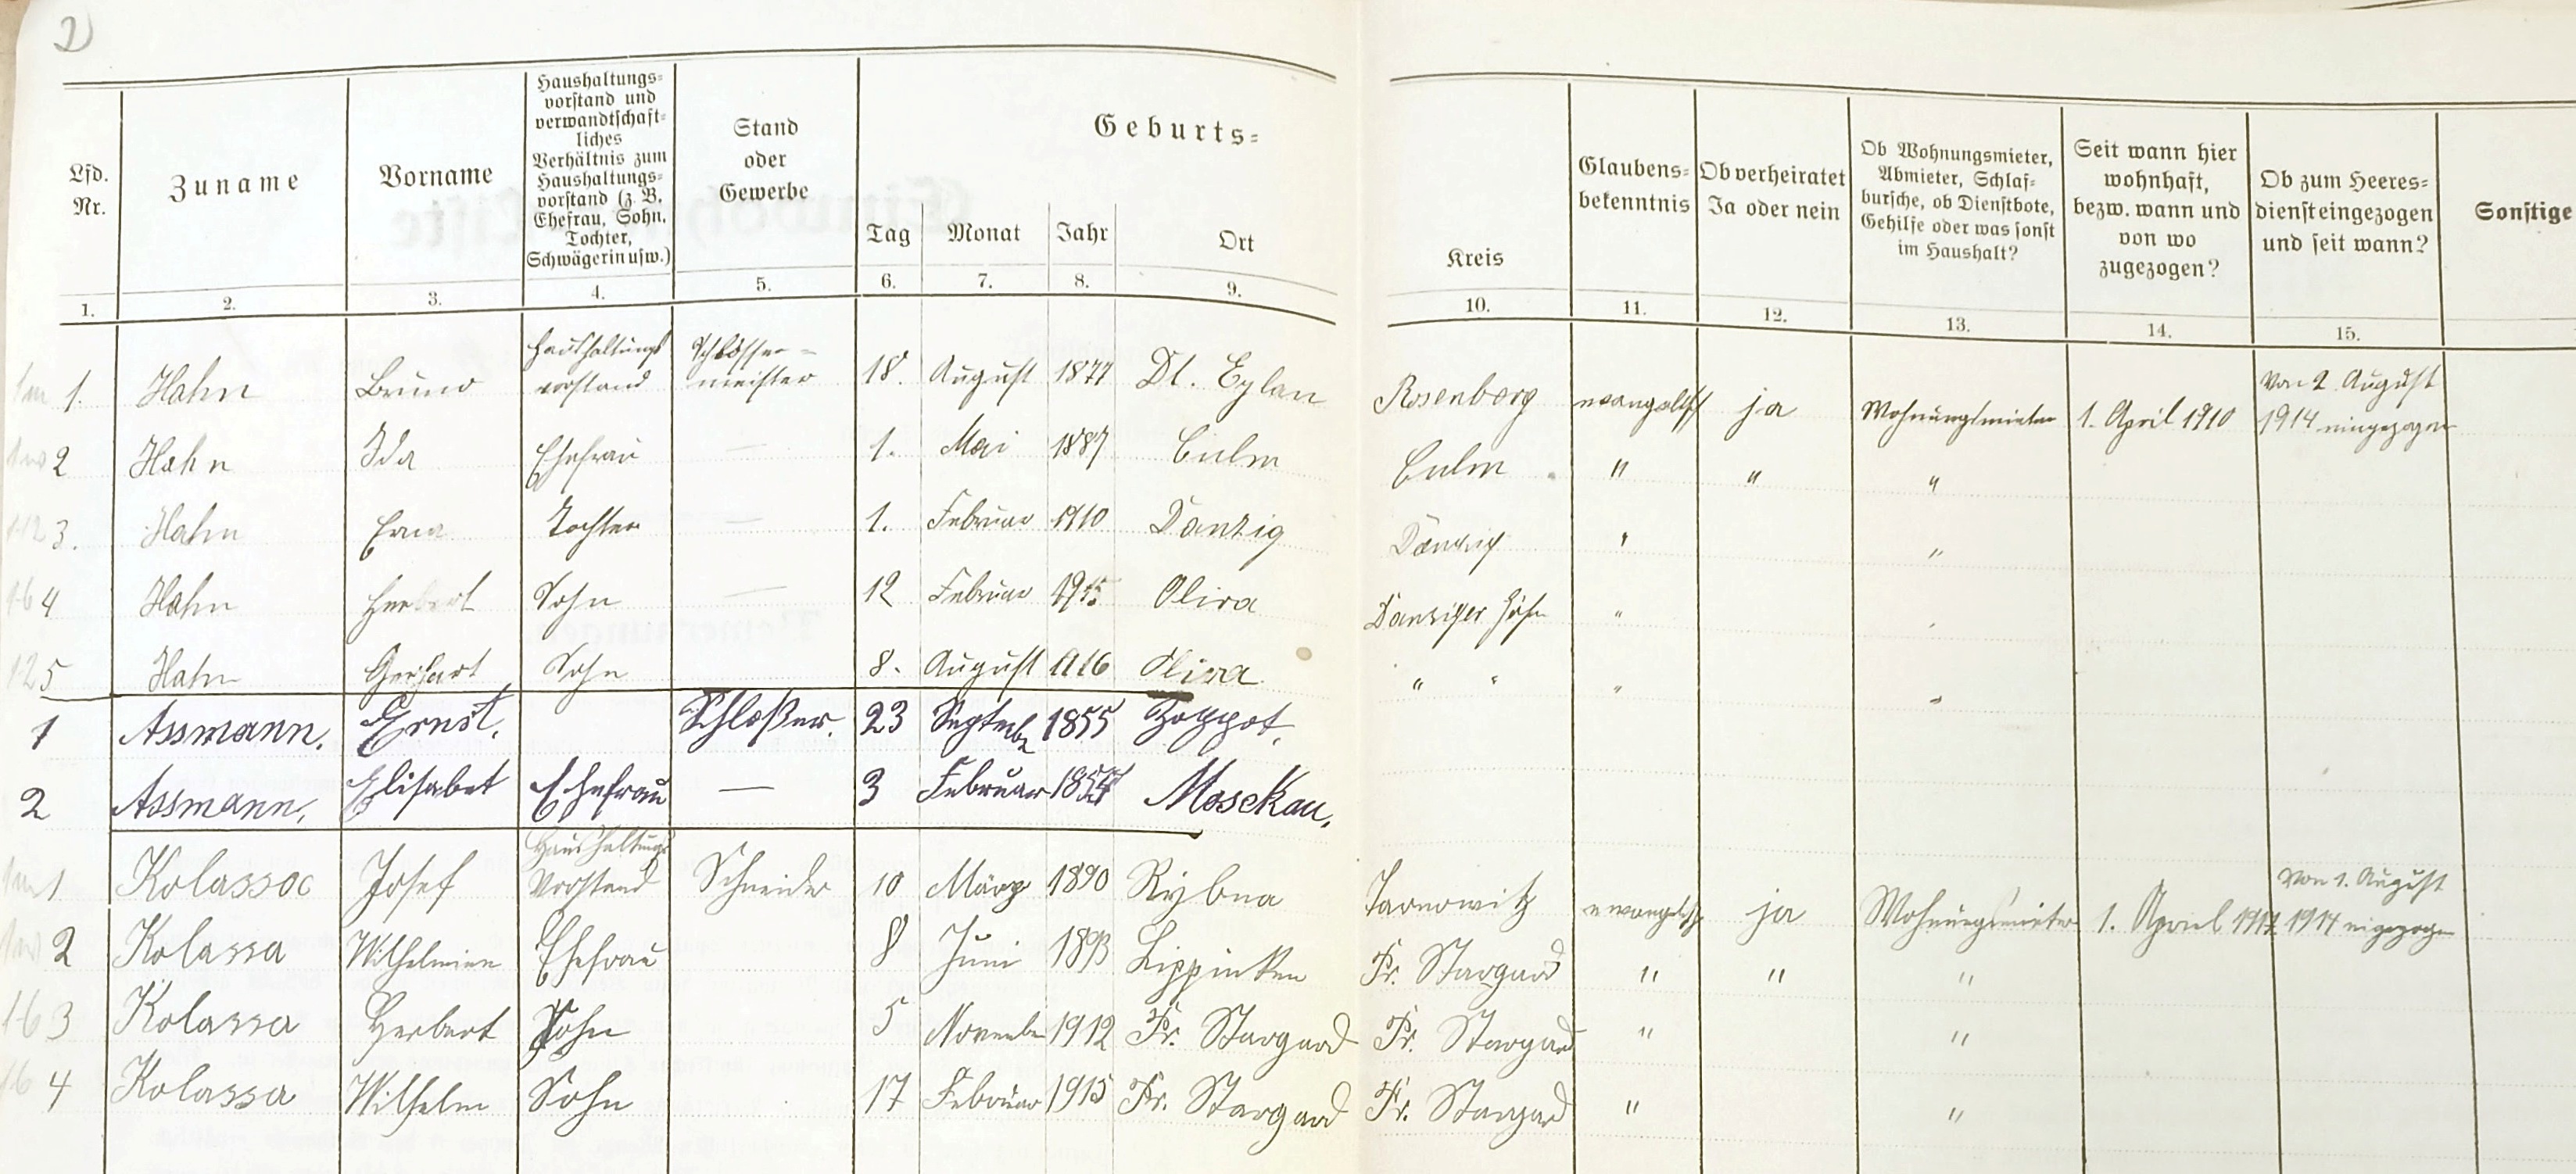 2
Haushaltungs=
vorstand und
verwandtschaft=
liches
Verhältnis zum
Haushaltungs=
vorstand (z. B.
Ehefrau, Sohn,
Tochter,
Schwägerin usw.)
Lfd.
Nr.
Zuname
Vorname
Stand
oder
Gewerbe
Geburts=
Tag Monat Jahr Ort
Kreis
Glaubens=
bekenntnis
Ob verheiratet
Ja oder nein
Ob Wohnungsmieter,
Abmieter, Schlaf=
bursche, ob Dienstbote,
Gehilfe oder was sonst
im Haushalt?
Seit wann hier
wohnhaft,
bezw. wann und
von wo
zugezogen?
Ob zum Heeres=
dienst eingezogen
und seit wann?
Sonstige
1. 2. 3. 4. 5. 6. 7. 8. 9. 10. 11. 12. 13. 14. 15.
Haushaltungs Schlosser= Von 2 August
1. Hahn Bruno vorstand meister 18. August 1877 Dt. Eylau Rosenberg evangelisch ja Wohnungsmieter 1. April 1910 1914 eingezogen
2 Hahn Ida Ehefrau — 1. Mai 1887 Culm Culm " " "
3. Hahn Erna Tochter — 1. Februar 1910 Danzig Danzig " "
4 Hahn Herbert Sohn — 12 Februar 1915 Oliva Danziger Höhe " "
5 Hahn Gerhart Sohn 8. August 1916 Oliva " " " "
1 Assmann. Ernst. Schloßer. 23 Septembe 1855 Zoppot.
2 Assmann. Elisabet Ehefrau — 3 Februar 1857 Mosekau.
Haushaltungs Von 1. August
1 Kolassa Josef Vorstand Schneider 10 März 1890 Rybna Tarnowitz evangelisch ja Wohnungsmieter 1. April 1917 1914 eigezogen
2 Kolassa Wilhelmine Ehefrau 8 Juni 1893 Lippinken Pr. Stargard " " "
3 Kolassa Herbert Sohn 5 November 1912 Pr. Stargard Pr. Stargard " "
4 Kolassa Wilhelm Sohn 17 Februar 1915 Pr. Stargard Pr. Stargard " "